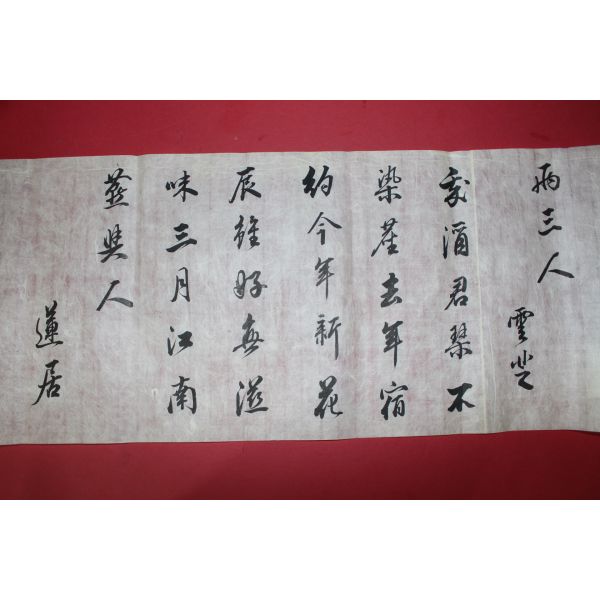 兩三人
雲
我酒君琴不
染塵去年宿
約今年新花
辰雖好無滋
味三月江南
燕與人
蓮居